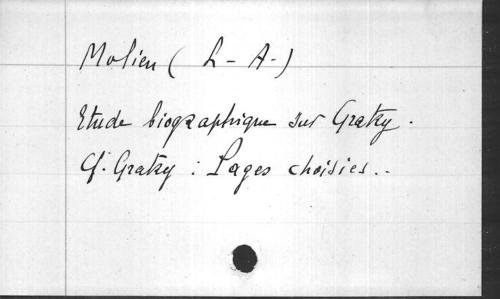 Molien ( L - A - )
Etude biographique sur Gratry.
Cf. Gratry : Pages choisies..